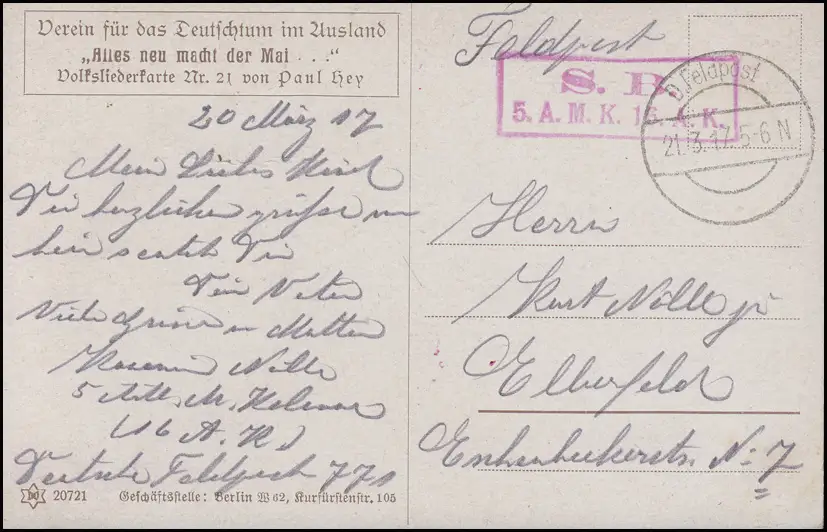 Verein für das Deutschtum im Ausland
„Alles neu macht der Mai . . .“
Volksliederkarte Nr. 21 von Paul Hey
Feldpost
S. B.
5. A. M. K. 16. A. K.
D. Feldpost
21.3.17. 5-6 N
20 März 17
Mein Liebes Kind
Die herzlichen Grüße
Dir
Dein Vater
Viele Grüße an Mutter
Nolle
5 Artl. M. Kolonne
(16 A. K.)
Deutsche Feldpost 771
Herrn
Kurt Nolle jr
Elberfeld
No 7
20721 Geschäftsstelle: Berlin W 62, Kurfürstenstr. 105